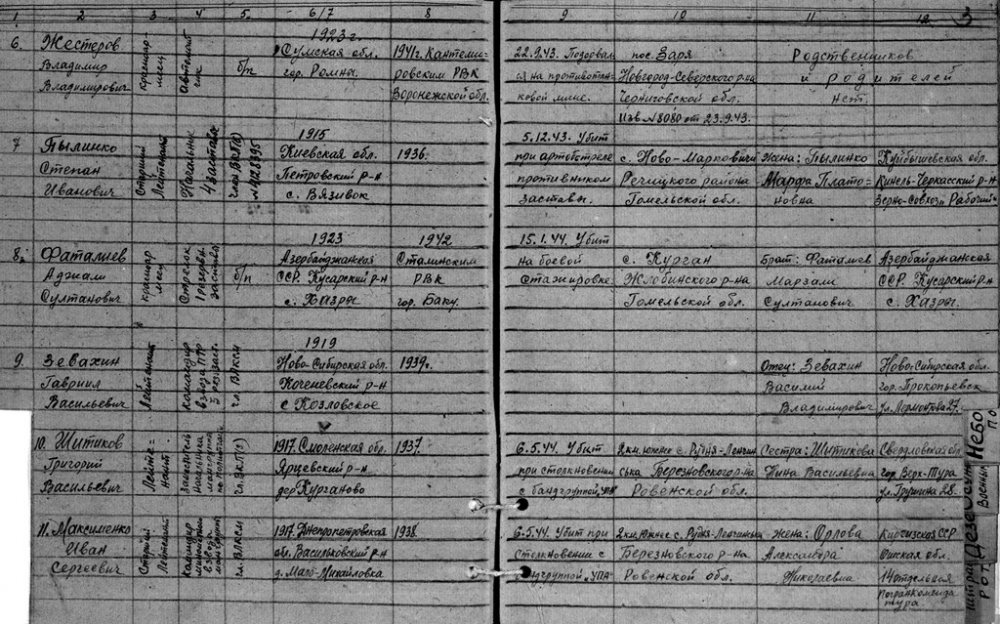 1. 2 3 4 5. 6/7 8 9 10 11 12
6. Жестеров
Владимир
Владимирович
б/п
1923г.
Сумская обл.
гор. Ромны
1941г. Кантеми-
ровским РВК
Воронежской обл.
22.9.43. Подорвал
ся на противотан-
ковой мине.
пос. Заря
Новгород-Северского р-на
Черниговской обл.
Изв №8080 от 23.9.43.
Родственников
и родителей
нет.
7 Пылинко
Степан
Иванович
Старший
Лейтенант
Начальник
4 заставы
1915
Киевская обл.
Петровский р-н
с. Вязивок
1936.
5.12.43. Убит
при артобстреле
противником
заставы.
с. Ново-Марковичи
Речицкого района
Гомельской обл.
Жена: Пылинко
Марфа Плато=
новна
Куйбышевская обл.
Кинель-Черкасский р-н
Зерно-совхоз Рабочий
8. Фаталиев
Аджали
Султанович
Стрелок
заставы
б/п
1923
Азербайджанская
ССР. Кусарский р-н
с. Хазры
1942
Сталинским
РВК
гор. Баку.
15.1.44. Убит
на боевой
стажировке.
с. Курган
Жлобинского р-на
Гомельской обл.
Брат: Фаталиев
Марзали
Султанович
Азербайджанская
ССР. Кусарский р-н
с. Хазры.
9. Зевахин
Гавриил
Васильевич
Лейтенант
Командир
взвода ПТР
чл. ВЛКСМ
1919
Ново-Сибирская обл.
Коченевский р-н
с Козловское
1939г.
Отец: Зевахин
Василий
Владимирович
Ново-Сибирская обл.
гор. Прокопьевск
ул. Лермонтова 27.
10. Шитиков
Григорий
Васильевич
Лейте=
нант
Заместитель
начальника
чл. ВКП(б)
1917. Смоленская обл.
Ярцевский р-н
дер. Курганово
1937.
6.5.44. Убит
при столкновении
с бандгруппой „УПА"
2 км. южнее с. Рудня-Ленчин
ська Березновского р-на
Ровенской обл.
Сестра: Шытикова
Нина Васильевна
Свердловская обл.
гор. Верх-Тура
ул. Грушина 28.
11. Максименко
Иван
Сергеевич
Старший
Лейтенант
Командир
взвода
чл. ВЛКСМ
1917. Днепропетровская
обл. Васильковский р-н
д. Мало-Михайловка
1938.
6.5.44. Убит при
столкновении с
бандгруппой „УПА"
2 км. южнее с. Рудня-Ленчинська
Березновского р-на
Ровенской обл.
Жена: Орлова
Александра
Николаевна
Киргизская ССР
Ошская обл.
14 отдельная
погранкоменда
тура.